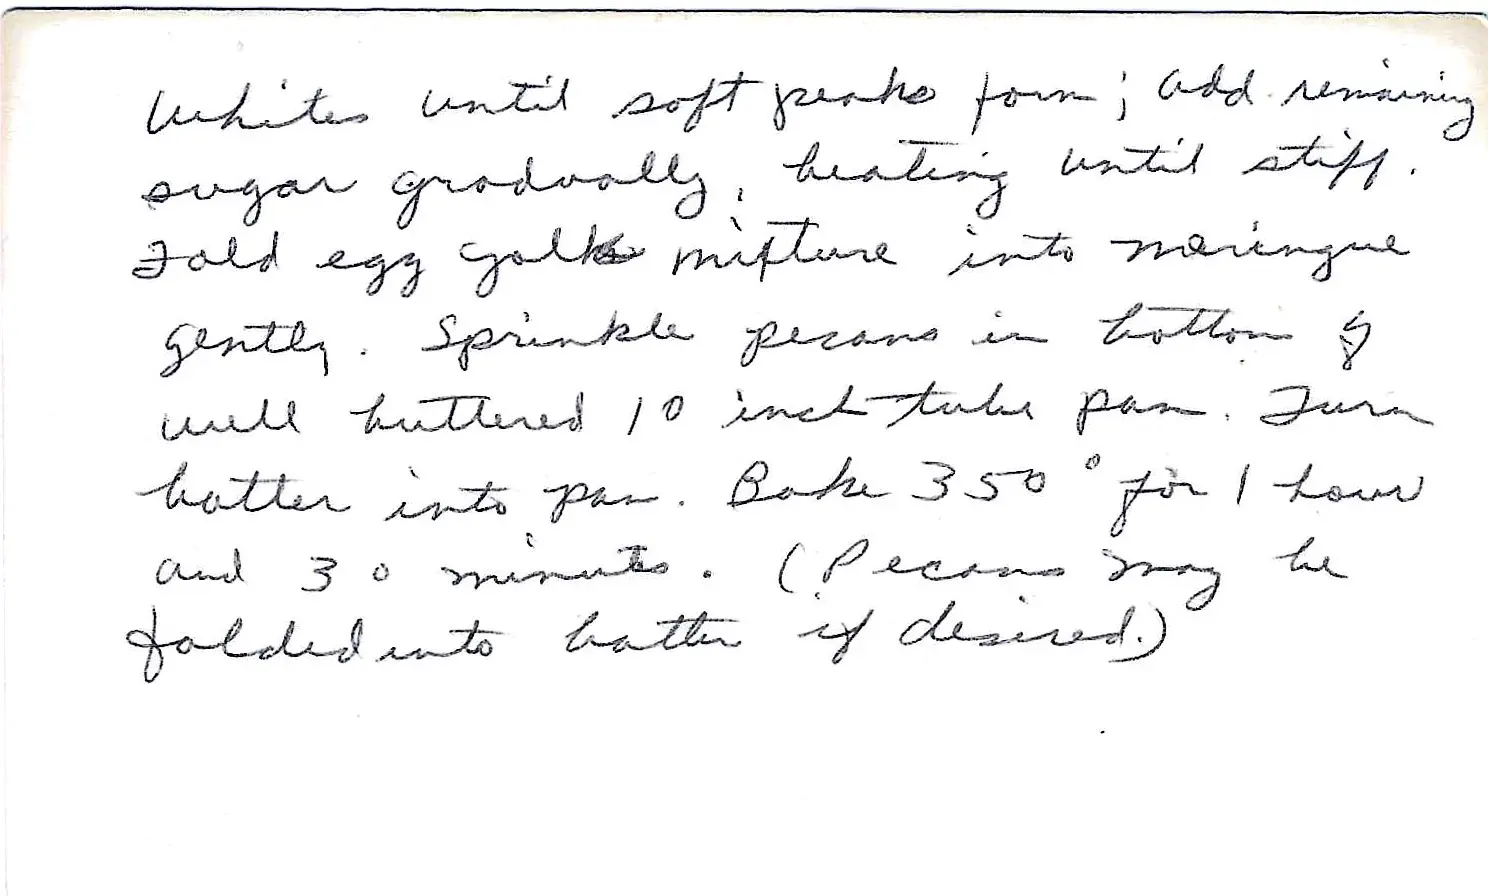 Whites until soft peaks form; add remaining
sugar gradually, beating until stiff.
Fold egg yolk mixture into meringue
gently. Sprinkle pecans in bottom of
well buttered 10 inch tube pan. Turn
batter into pan. Bake 350° for 1 hour
and 30 minutes. (Pecans may be
folded into batter if desired.)